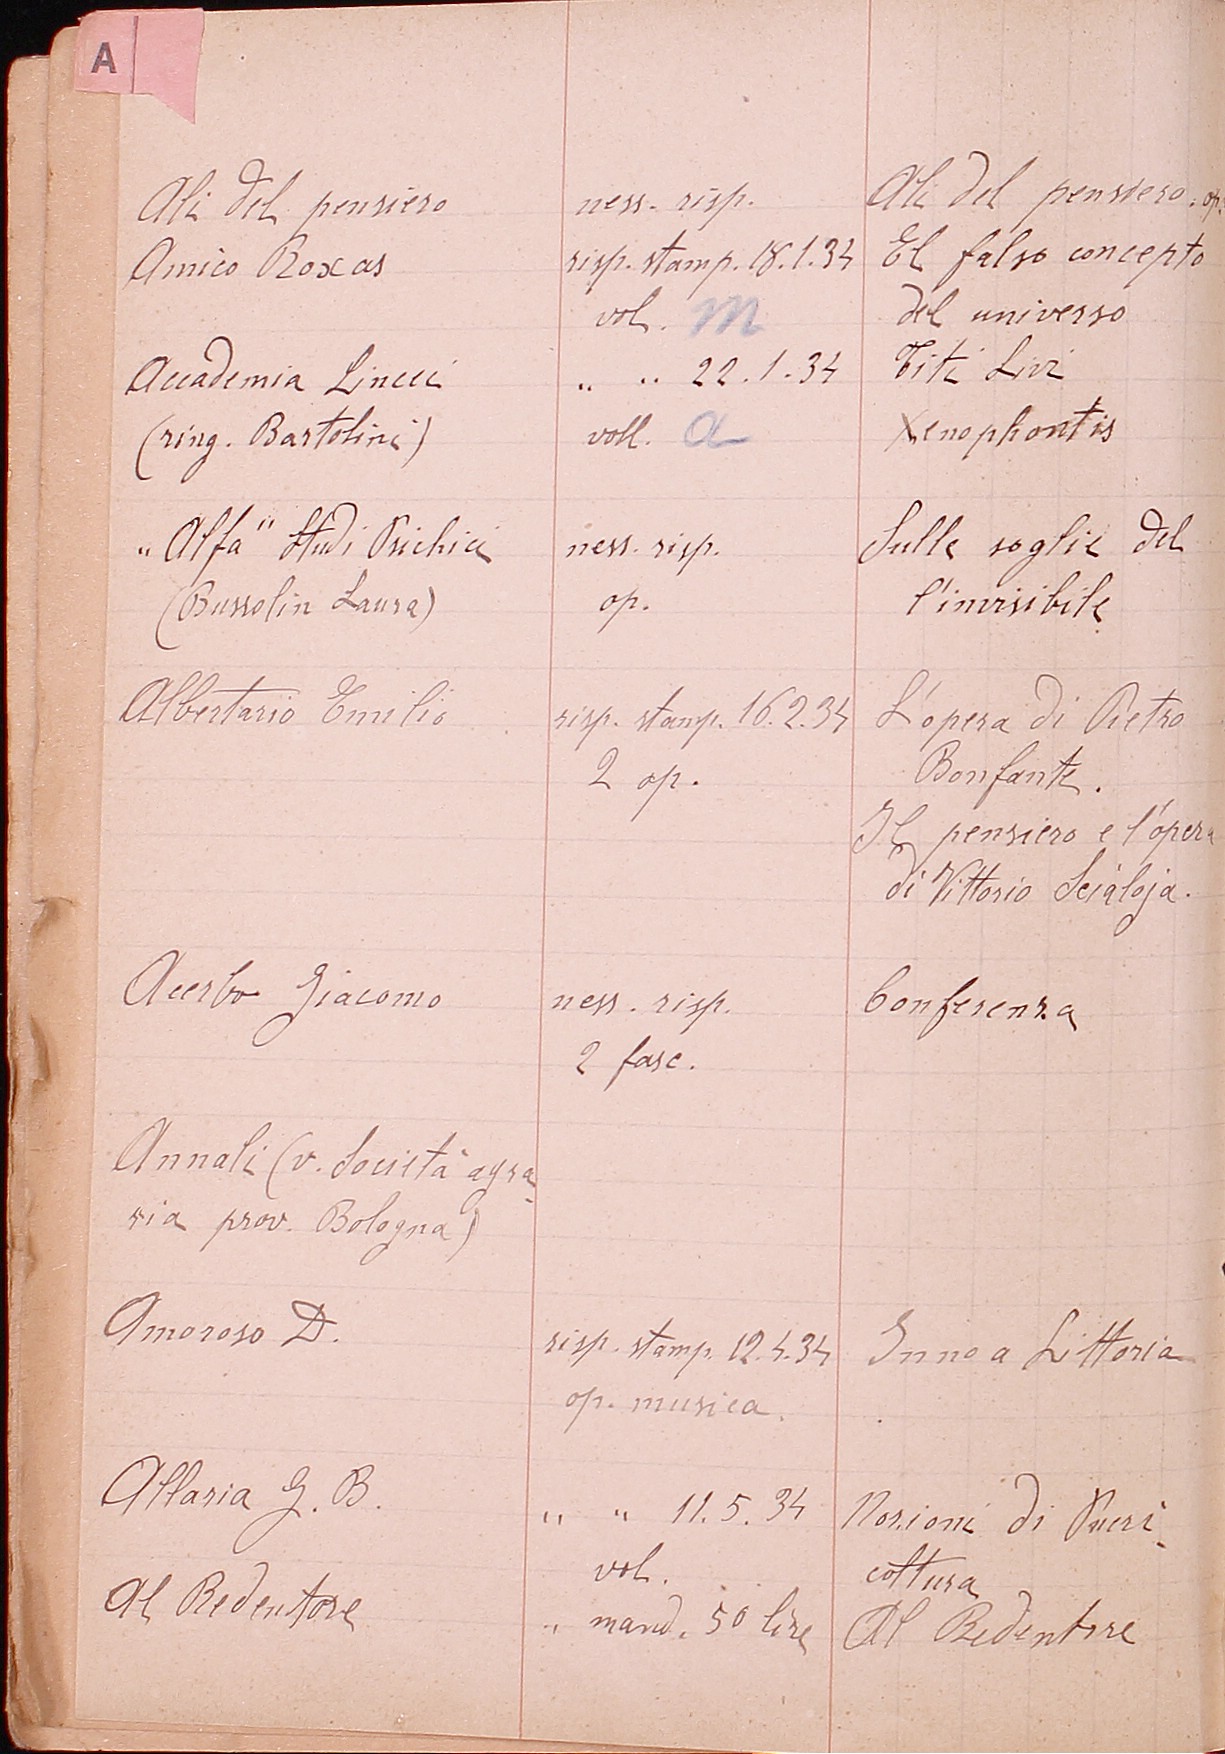 A
Ali del pensiero ness. risp. Ali del pensiero. op.
Amico Roxas risp. stamp. 18.1.34 El falso concepto
vol. M del universo
Accademia Lincei " " 22.1.34 Titi Livi
(ring. Bartolini) voll. a Xenophontis
"Alfa" Studi Psichici ness. risp. Sulle soglie del
(Bussolin Laura) op. l'invisibile
Albertario Emilio risp. stamp. 16.2.34 L'opera di Pietro
2 op. Bonfante.
Il pensiero e l'opera
di Vittorio Scialoja.
Acerbo Giacomo ness. risp. Conferenza
2 fasc.
Annali (v. Società agra-
ria prov. Bologna)
Amoroso D. risp. stamp. 12.4.34 Inno a Littoria
op. musica.
Allaria G. B. " " 11.5.34 Nozioni di Pueri-
vol. coltura
Al Redentore " mand. 50 lire Al Redentore